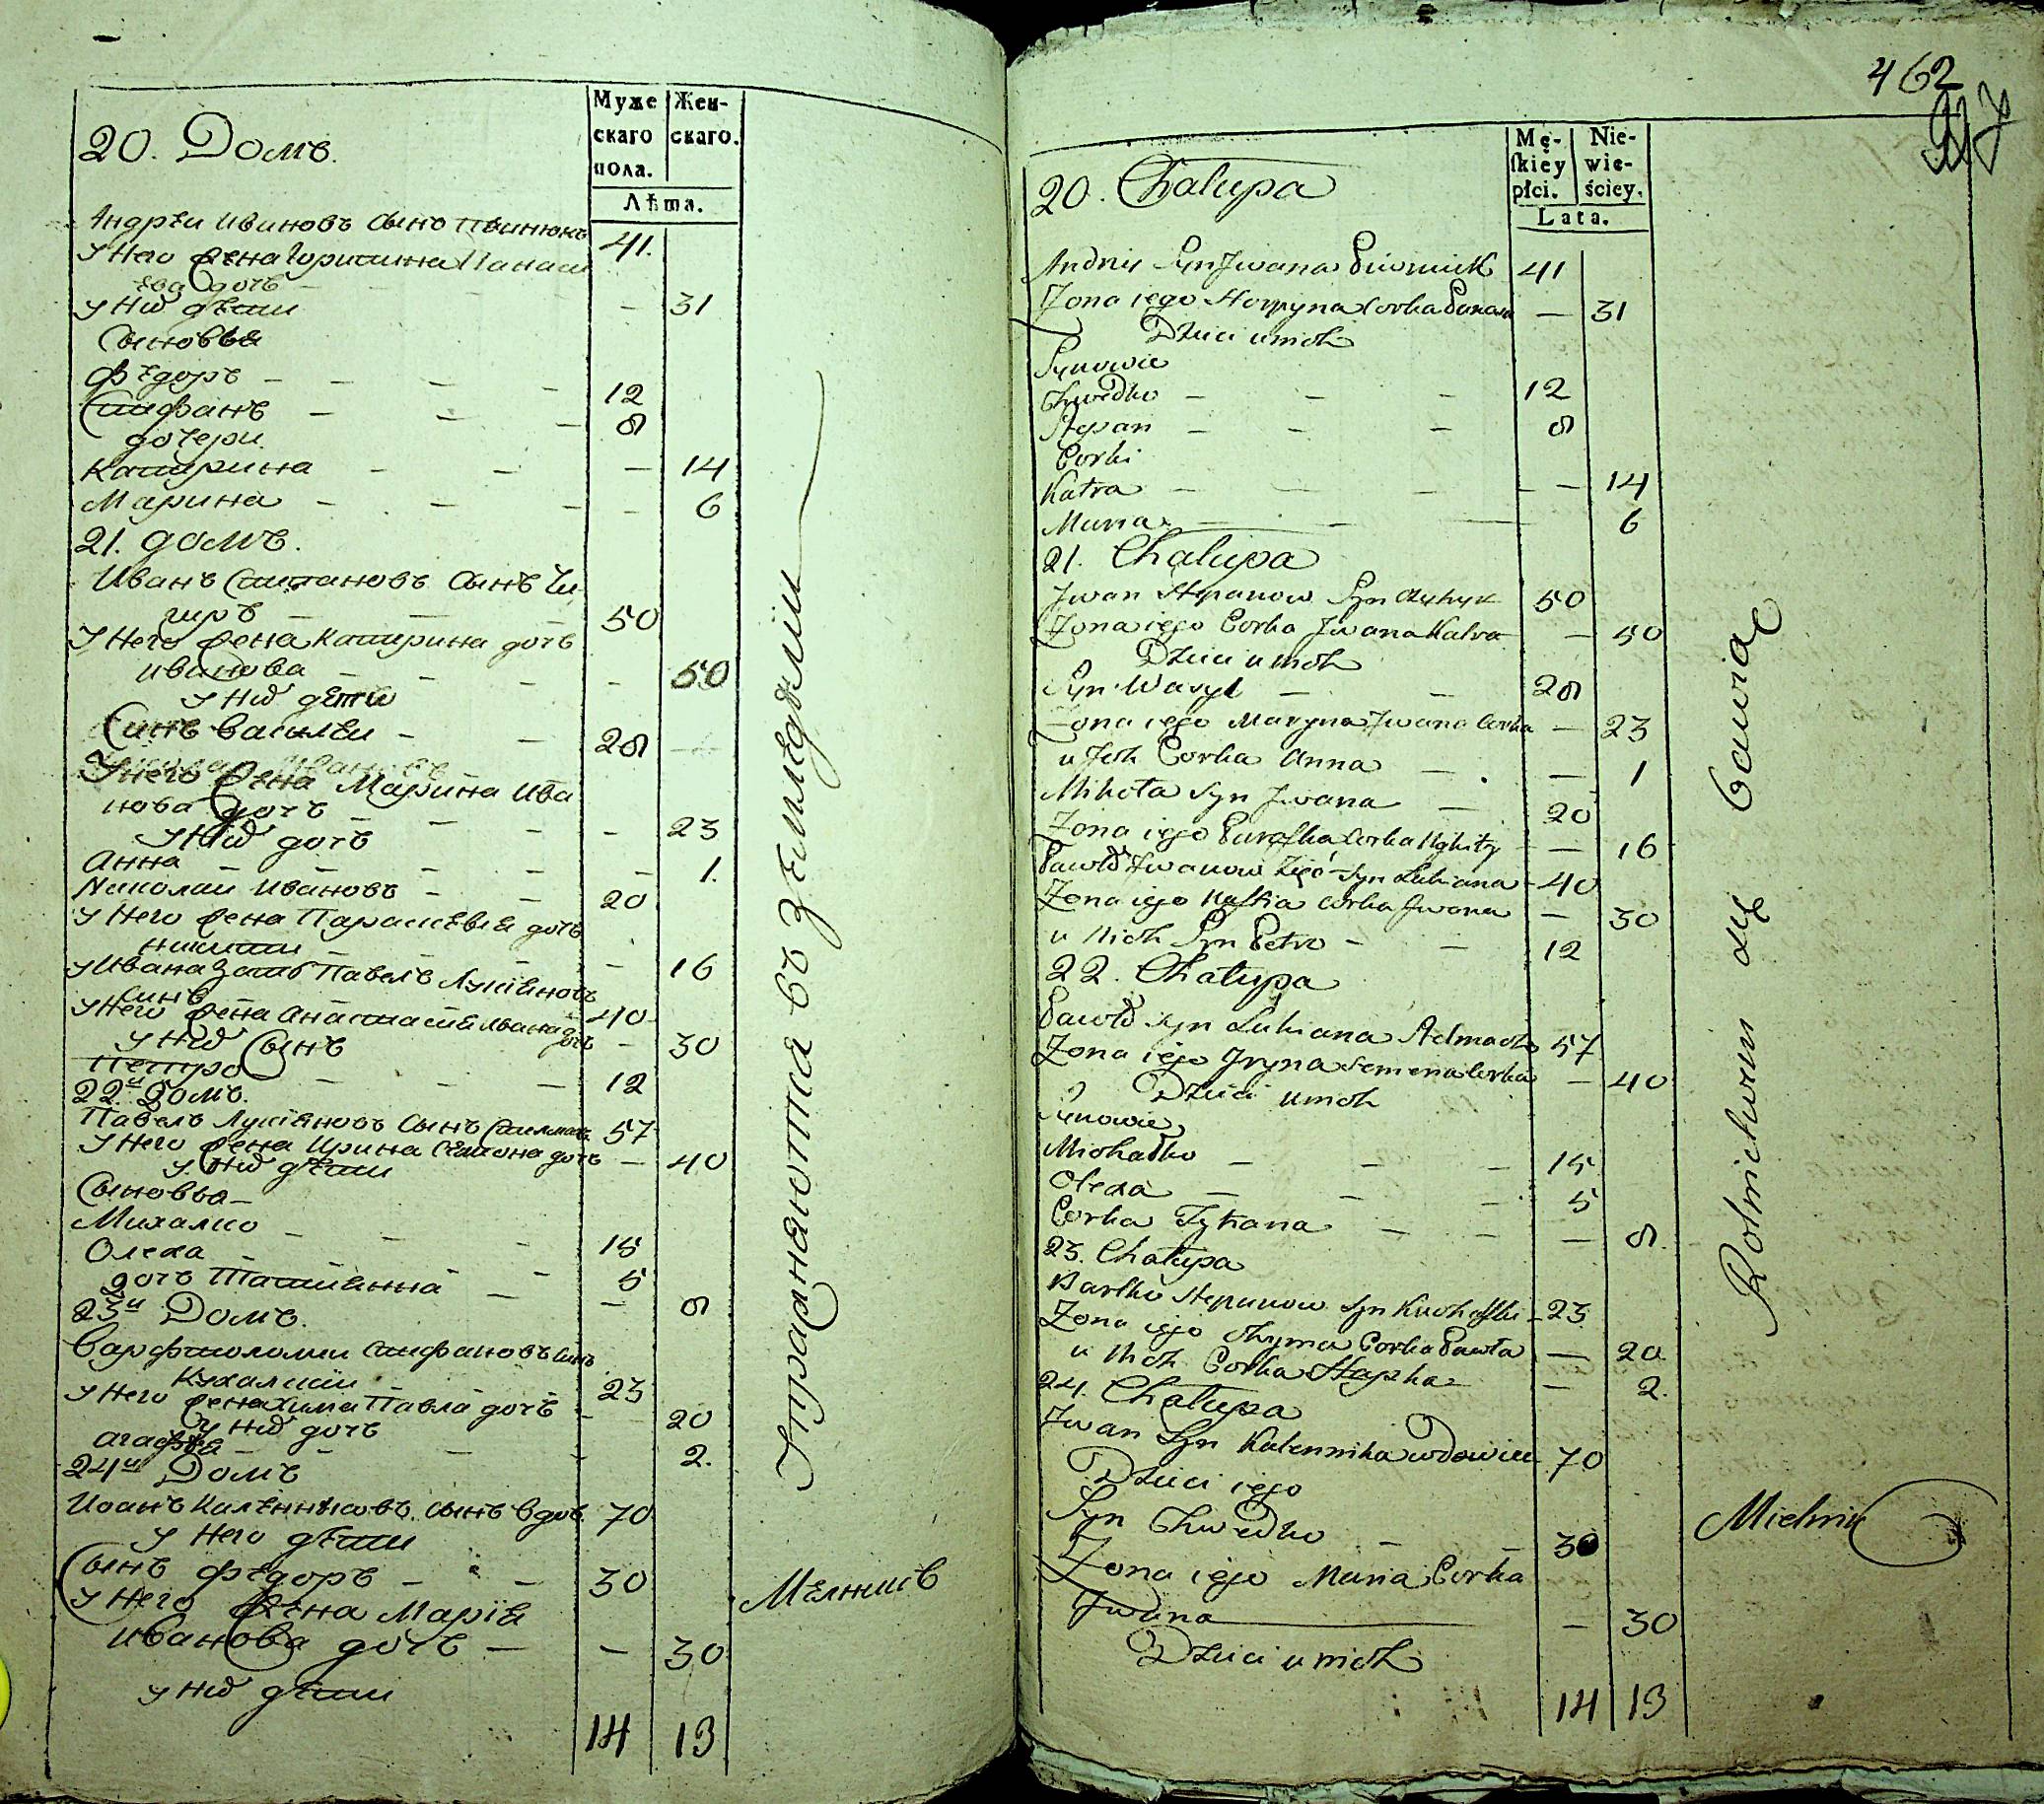 Муже
скаго
пола.
Жен-
скаго.
Лѣта.
20. Домъ.
Андрѣи Ивановъ сынъ
41.
У Него жена Горпина Панас
ѣва дочь
31
У Них дѣти
Сыновья
Фѣдоръ
12
Стефанъ
8
дочери
Катерина
14
Марина
6
21. домъ.
Иванъ Степановъ сынъ Чи
гиръ
50
У Него жена Катерина дочь
Иванова
50
У Них дети
Синъ Василѣи
28
У него жена Марина Ива
нова дочь
23
У Них дочь
Анна
1.
Николаи Ивановъ
20
У Него жена Параскѣвия дочь
Никиты
16
У Ивана зять Павелъ Лукияновъ
синъ
40
У Него жена Анастасия Ивана дочь
30
У Них Сынъ
Петро
12
22й Домъ.
Павелъ Лукияновъ Сынъ Стельмахъ
57
У Него жена Ирина Семена дочь
40
У Них дѣти
Сыновья
Михалко
15
Олекса
5
дочь Татиянна
8
23й Домъ.
Варфоломѣи Стефановъ синъ
Кухалский
23
У Него жена Хима Павла дочь
20
У Них дочь
Агафия
2.
24й Домъ
Иванъ Калѣнниковъ сынъ вдов.
70
У Него дѣти
Сынъ Фѣдоръ
30
У Него жена Мария
Иванова дочь
30
У Них дѣти
14 13
Упражняются въ земледѣлии
Мелникъ
462
Mę-
skiey
płci.
Nie-
wie-
ściey.
Lata.
20. Chałupa
Andriy Syn Jwana Piwniuk 41
Zona iego Horpyna Corka Panasa — 31
Dzieci u nich
Synowie
Chwedko 12
Stepan 8
Corki
Katra 14
Maria 6
21. Chałupa
Jwan Stepanow Syn Czyhyr 50
Zona iego Corka Jwana Katra — 50
Dzieci u nich
Syn Wasyl 28
Zona iego Maryna Jwana Corka — 23
u Jch Corka Anna — 1
Mikoła Syn Jwana 20
Zona iego Paraska Corka Mykity — 16
Pawło Jwanow Zięć Syn Lukiana 40
Zona iego Nastia Corka Jwana — 30
u Nich Syn Petro 12
22. Chałupa
Pawło Syn Lukiana Stelmach 57
Zona iego Jryna Semena Corka — 40
Dzieci u nich
Synowie
Michałko 15
Olexa 5
Corka Tytiana — 8
23. Chałupa
Bartko Stepanow Syn Kuchalski 23
Zona iego Chyma Corka Pawła — 20
u Nich Corka Hapka — 2.
24. Chałupa
Jwan Syn Kalennika wdowiec 70
Dzieci iego
Syn Chwedko 30
Zona iego Maria Corka
Jwana — 30
Dzieci u nich
14 13
Rolnictwem się bawią
Mielnik